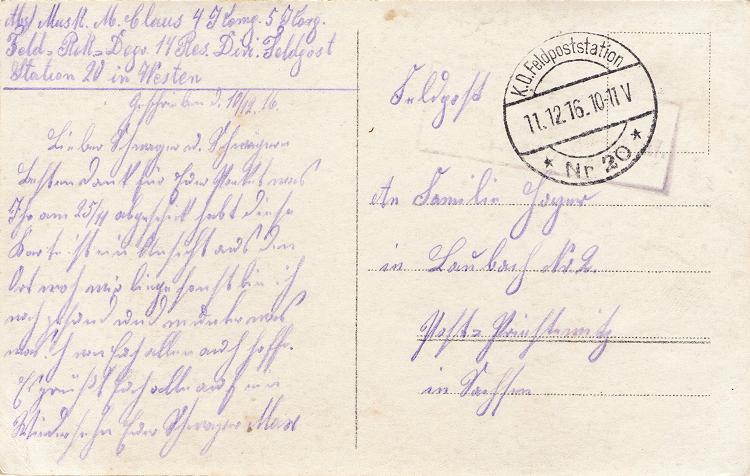 Abs/ Musk. M. Claus 4 J Komp. 5 J Korp.
Feld-Rek-Depo. 14 Res. Divi. Feldpost
Station 20 in Westen
Geschrieben d. 10/12. 16.
Lieber Schwager u. Schwägerin
Besten dank für Euer Packet was
Ihr am 25/11 abgeschickt habt diese
Karte ist ein Ansicht aus den
Ort woh wir liegen sonst bin ich
noch gesund und munter was
von Euch allen auch hoffe.
Es grüßt Euch alle auf ein
Wiedersehn Euer Schwager Max
Feldpost
K.D. Feldpoststation
11.12.16. 10-11 V
* Nr 20 *
An Familie
in Laubach No 2.
Post=
in Sachsen